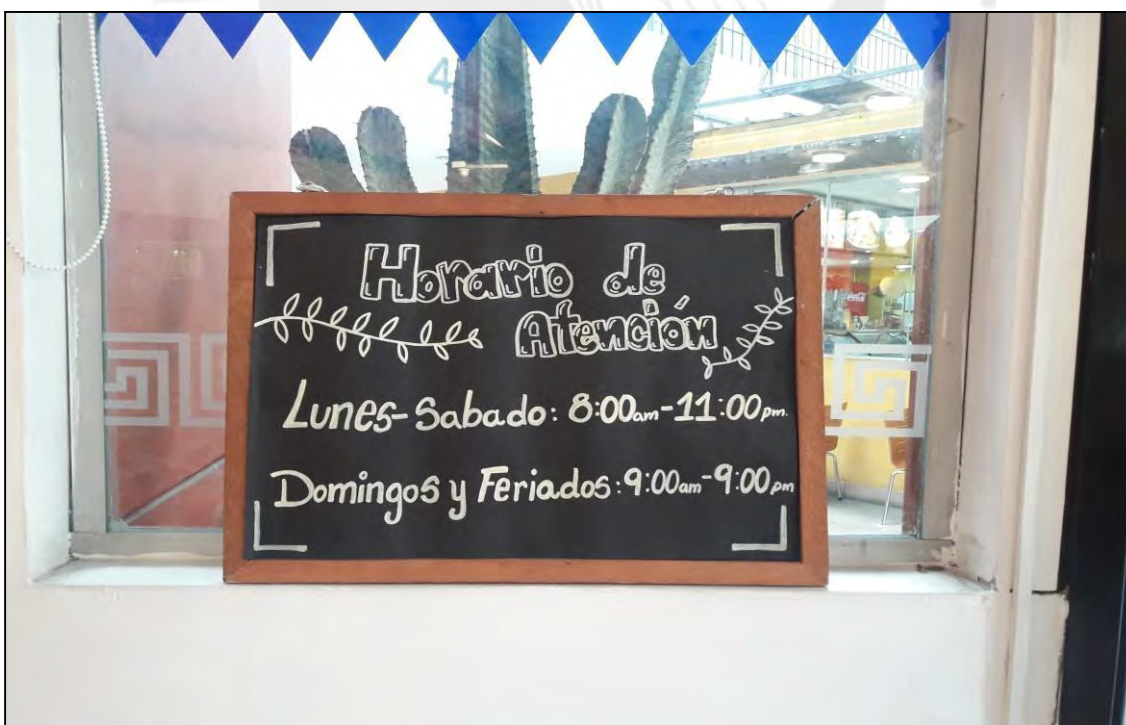 Horario de
Atención
Lunes-Sabado: 8:00am-11:00pm.
Domingos y Feriados: 9:00am-9:00pm
4
Coca-Cola